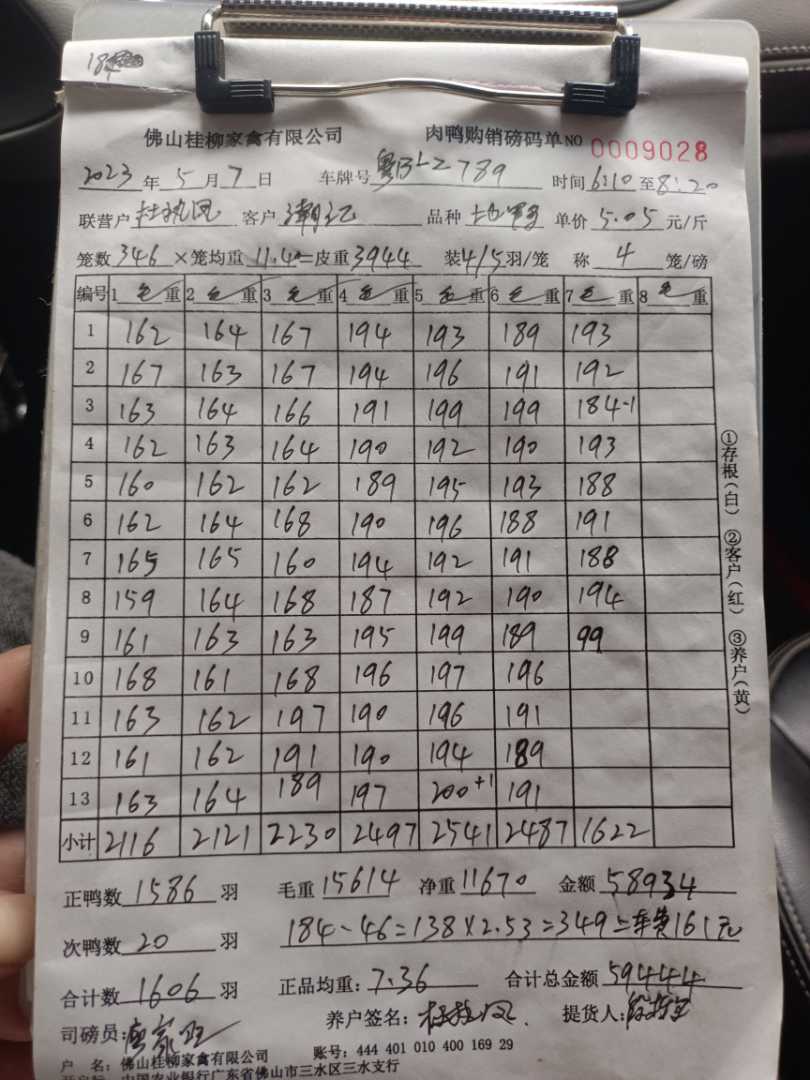 184
佛山桂柳家禽有限公司 肉鸭购销磅码单NO 0009028
2023年5月7日 车牌号粤BLZ789 时间6:10至8:20
联营户 客户 品种 单价5.05元/斤
笼数346×笼均重11.40=皮重3944 装4/5羽/笼 称4笼/磅
编号 1毛重 2毛重 3毛重 4毛重 5毛重 6毛重 7毛重 8毛重
1 162 164 167 194 193 189 193
2 167 163 167 194 196 191 192
3 163 164 166 191 199 199 184-1
4 162 163 164 190 192 190 193
5 160 162 162 189 195 193 188
6 162 164 168 190 196 188 191
7 165 165 160 194 192 191 188
8 159 164 168 187 192 190 194
9 161 163 163 195 199 189 99
10 168 161 168 196 197 196
11 163 162 197 190 196 191
12 161 162 191 190 194 189
13 163 164 189 197 200+1 191
小计 2116 2121 2230 2497 2541 2487 1622
①存根(白) ②客户(红) ③养户(黄)
正鸭数1586羽 毛重15614 净重11670 金额58934
次鸭数20羽 184-46=138×2.53=349 161元
合计数1606羽 正品均重:7.36 合计总金额59444
司磅员: 养户签名: 提货人:
户 名:佛山桂柳家禽有限公司 账号:444 401 010 400 169 29
开户行 中国农业银行广东省佛山市三水区三水支行